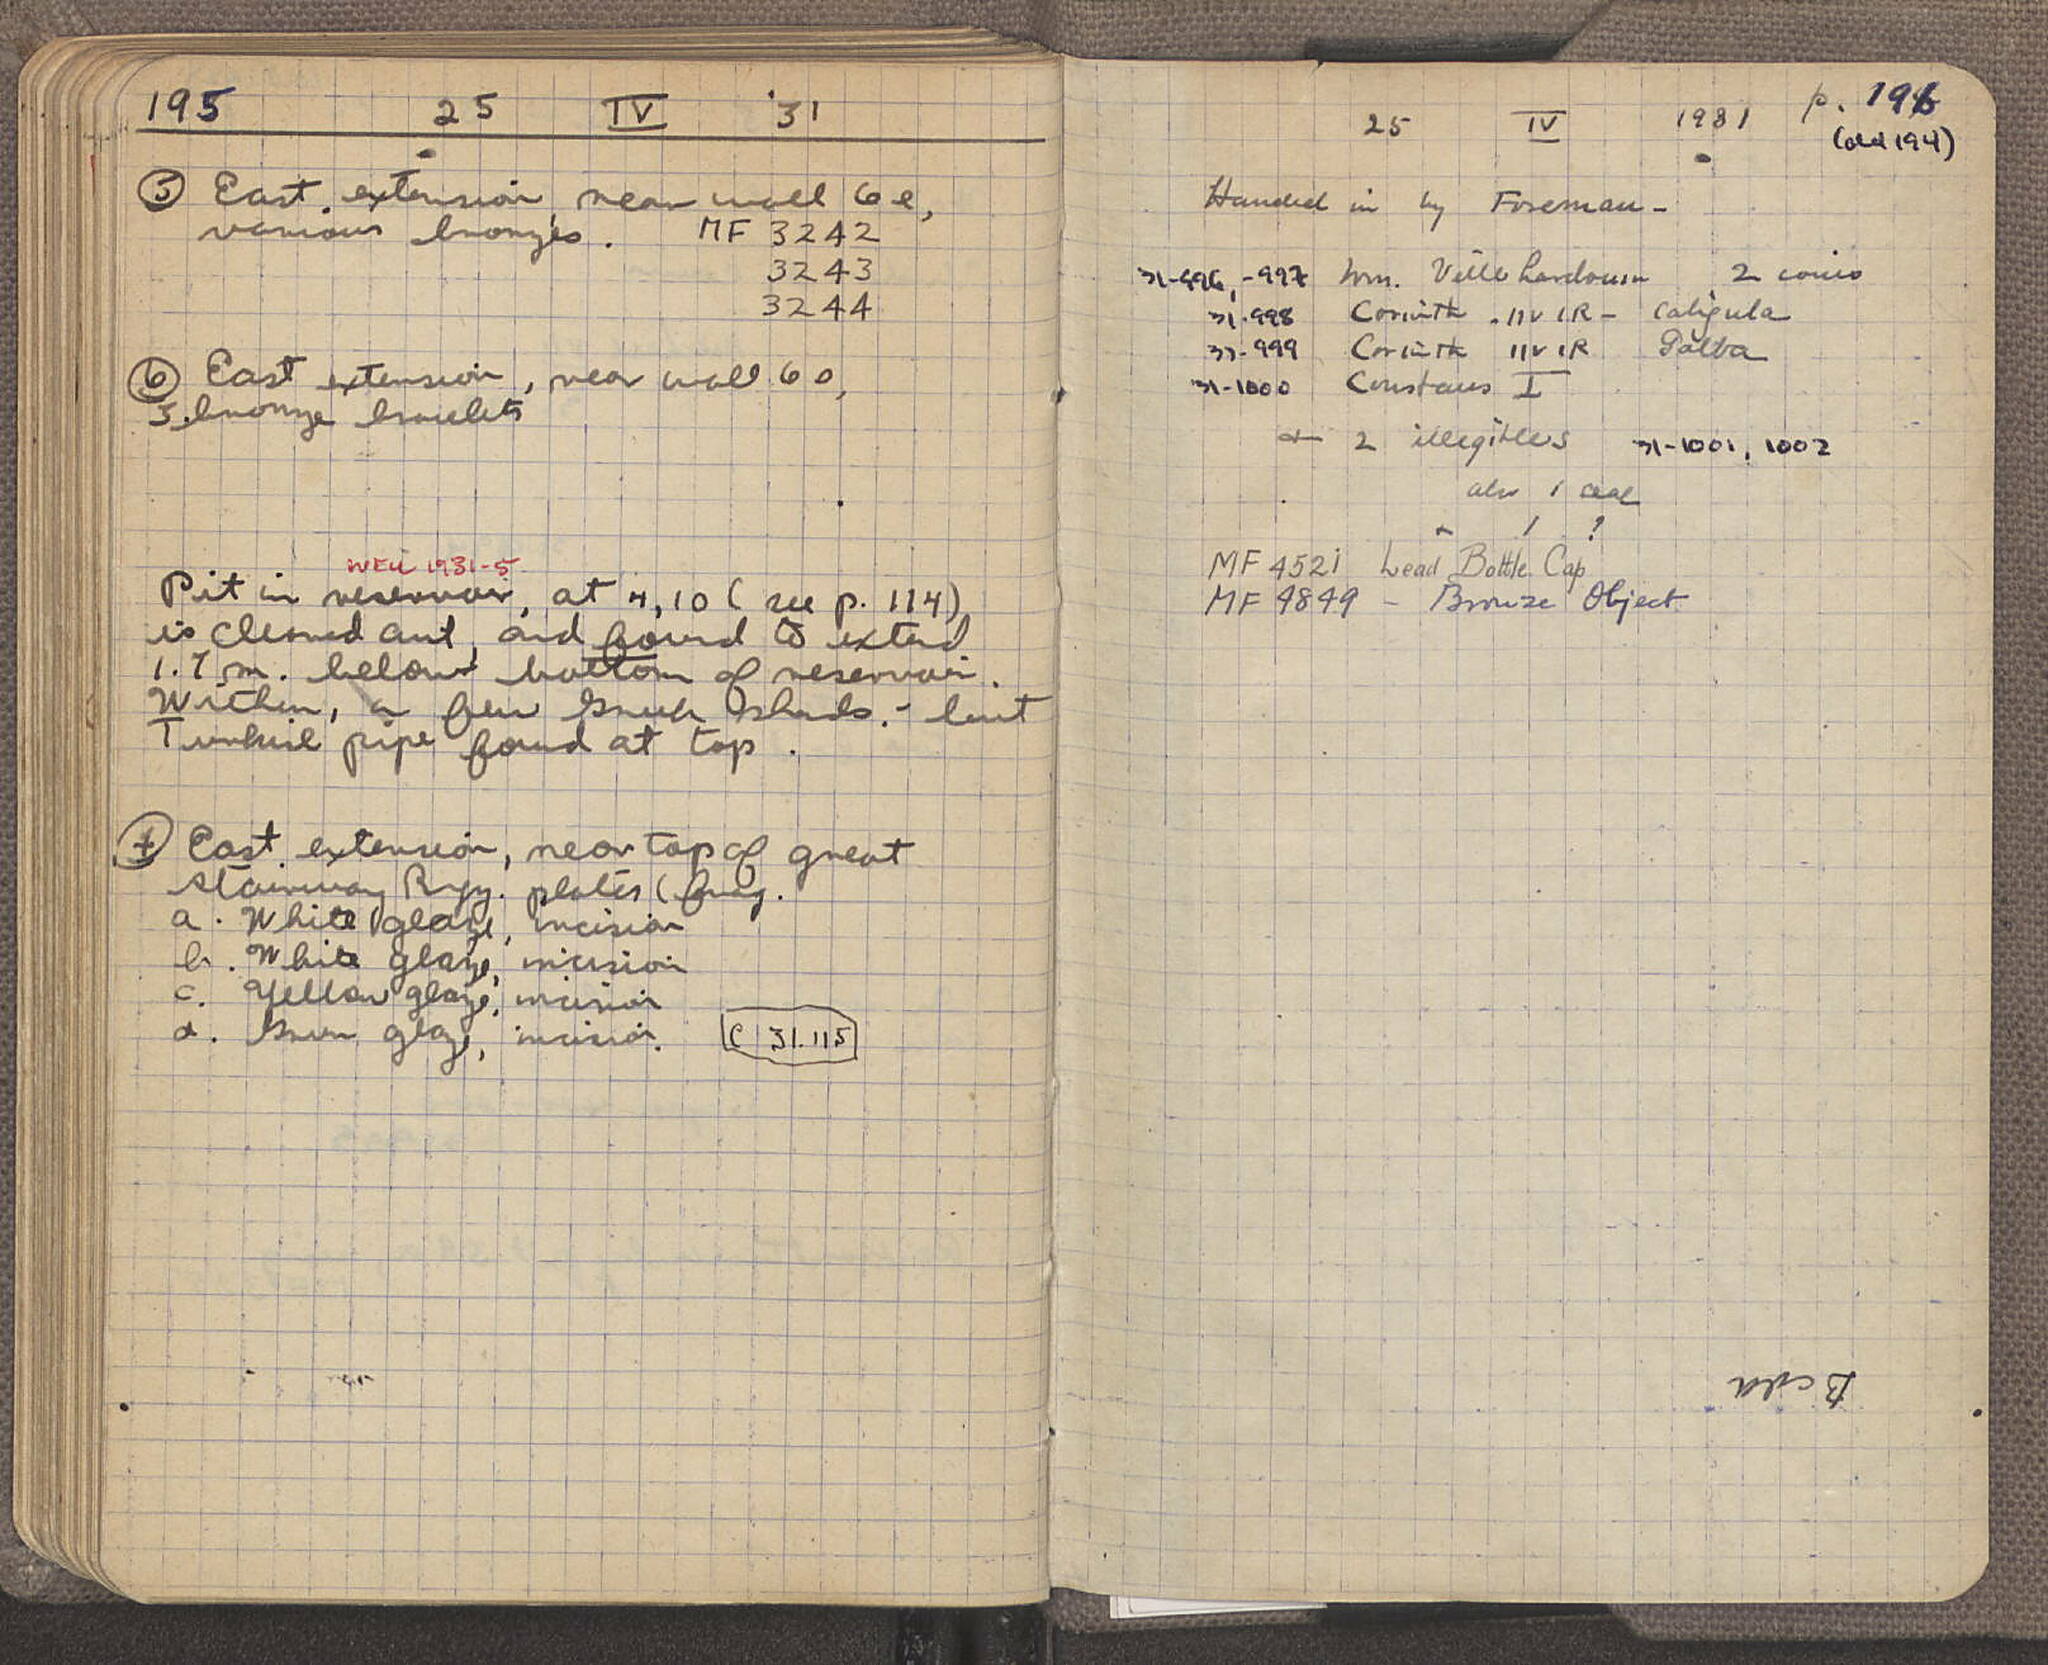 195 25 IV '31
⑤ East. extension, near wall 6e,
various bronzes. MF 3242
3243
3244
⑥ East extension, near wall 60,
3 bronze bracelets
WELL 1931-5
Pit in reservoir, at 4,10 (see p. 114)
is cleaned out, and found to extend
1.7 m. below bottom of reservoir.
Within, a few Greek sherds. - but
Turkish pipe found at top.
⑦ East extension, near top of great
stairway Byz. plates (frag.
a. White glaze, incision
b. White glaze, incision
c. Yellow glaze, incision
d. Green glaze, incision. C 31.115
25 IV 1931 p. 196
(old 194)
Handed in by Foreman -
31-996, -997 Wm. Villehardouin 2 coins
31-998 Corinth. IIVIR - Caligula
31-999 Corinth IIVIR Galba
31-1000 Constans I
+ 2 illegibles 31-1001, 1002
also 1 seal
" 1 ?
MF 4521 Lead Bottle Cap
MF 4849 - Bronze Object